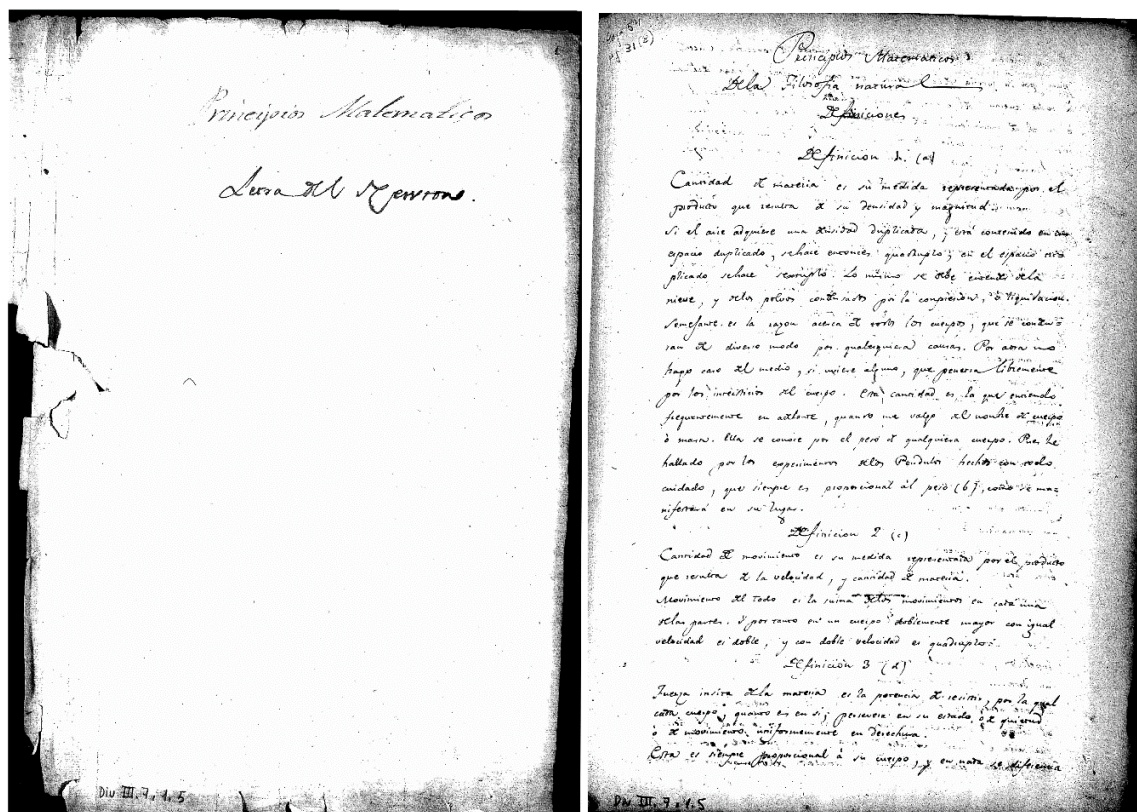 Principios Matematicos
Letra del Newton.
Div III. 7, 1. 5
pg. 31 (3)
Principios Matematicos
de la Filosofia natural
Definiciones
Definicion 1. (a)
Cantidad de materia es su medida representada por el
producto que resulta de su densidad y magnitud.
Si el aire adquiere una densidad duplicada, y está contenido en un
espacio duplicado, se hace entonces quadruplo; en el espacio tri
plicado se hace sextuplo. Lo mismo se debe entender de la
nieve, y delos polvos condensados por la compresion, ó liquidacion.
Semejante es la razon acerca de todos los cuerpos, que se conden
san de diverso modo por qualesquiera causas. Por aora no
hago caso del medio, si uviere alguno, que penetra libremente
por los intersticios del cuerpo. Esta cantidad es la que entiendo
frequentemente en adelante, quando me valgo del nombre de cuerpo
ò masa. Ella se conoce por el peso de qualquiera cuerpo. Pues he
hallado por los experimentos delos Pendulos hechos con todo
cuidado, que siempre es proporcional al peso (b), como se ma
nifestará en su lugar.
Definicion 2 (c)
Cantidad de movimiento es su medida representada por el producto
que resulta de la velocidad, y cantidad de materia.
Movimiento del todo es la suma delos movimientos en cada una
delas partes. Y por tanto en un cuerpo doblemente mayor con igual
velocidad es doble, y con doble velocidad es quadruplo.
Definicion 3 (d)
Fuerza insita dela materia es la potencia de resistir, por la qual
cada cuerpo, quanto es en si, persevera en su estado, ó de quietud
ò de movimiento uniformemente en derechura.
Esta es siempre proporcional à su cuerpo, y en nada se diferencia
Div III. 7, 1. 5